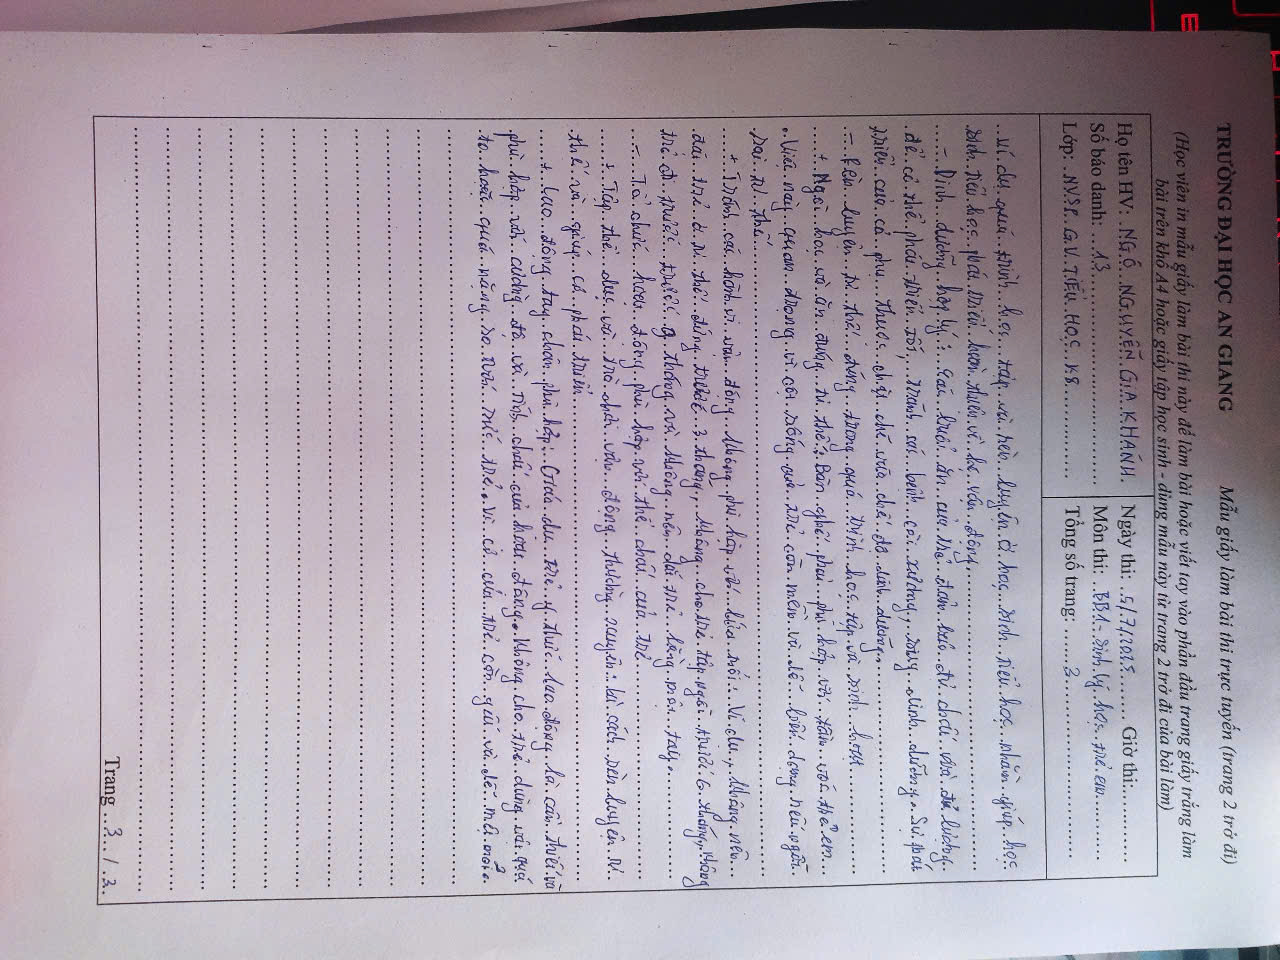 TRƯỜNG ĐẠI HỌC AN GIANG Mẫu giấy làm bài thi trực tuyến (trang 2 trở đi)
(Học viên in mẫu giấy làm bài thi này để làm bài hoặc viết tay vào phần đầu trang giấy trắng làm
bài trên khổ A4 hoặc giấy tập học sinh - dùng mẫu này từ trang 2 trở đi của bài làm)
Họ tên HV: NGÔ NGUYỄN GIA KHÁNH
Số báo danh: 13
Lớp: NVSP GV TIỂU HỌC K8
Ngày thi: 5/7/2025 Giờ thi:
Môn thi: BB1- Sinh lý học trẻ em
Tổng số trang: 3
Ví dụ quá trình học tập và rèn luyện ở học sinh tiểu học nhằm giúp học
sinh tiểu học phát triển hoàn thiện về hệ vận động.
- Dinh dưỡng hợp lý: các buổi ăn của trẻ đảm bảo đủ chất và đủ lượng
để cơ thể phát triển tốt, tránh bệnh còi xương, suy dinh dưỡng. Sự phát
triển của cơ phụ thuộc chặt chẽ vào chế độ dinh dưỡng.
- Rèn luyện tư thế đúng trong quá trình học tập và sinh hoạt
+ Ngồi học và ăn đúng tư thế: Bàn ghế phải phù hợp với tầm vóc trẻ em.
Việc này quan trọng vì cột sống của trẻ còn mềm và dễ biến dạng nếu ngồi
sai tư thế.
+ Tránh các hành vi vận động không phù hợp với lứa tuổi. Ví dụ, không nên
đặt trẻ ở tư thế đứng trước 3 tháng, không cho trẻ tập ngồi trước 6 tháng, không
trẻ đi trước trước 9 tháng và không nên dắt trẻ bằng một tay.
- Tổ chức hoạt động phù hợp với thể chất của trẻ
+ Tập thể dục và trò chơi vận động thường xuyên: là cách rèn luyện tư
thế và giúp cơ phát triển.
+ Lao động tay chân phù hợp: Giáo dục trẻ ý thức lao động là cần thiết và
phù hợp với cường độ và tính chất của hoạt động. Không cho trẻ dùng vật quá
to hoặc quá nặng so với sức trẻ. Vì cơ của trẻ còn yếu và dễ mệt mỏi.
Trang 3 / 3